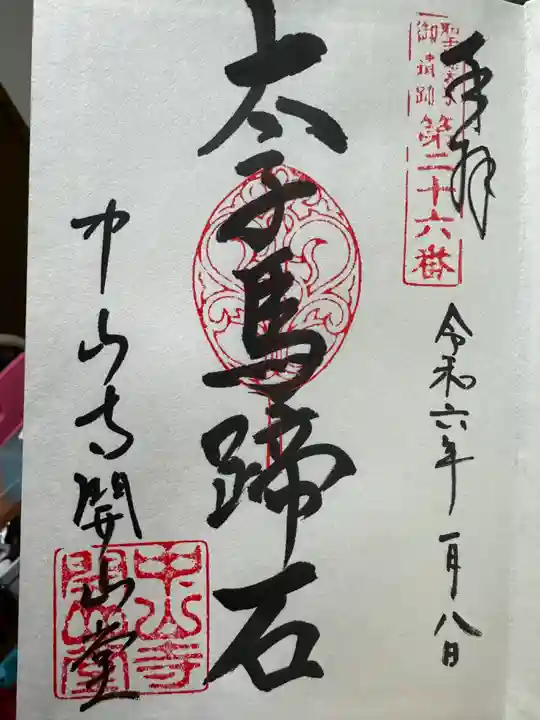 奉拝
聖徳太子
御遺跡
第二十六番
令和六年一月八日
太子馬蹄石
中山寺開山堂
中山寺
開山堂